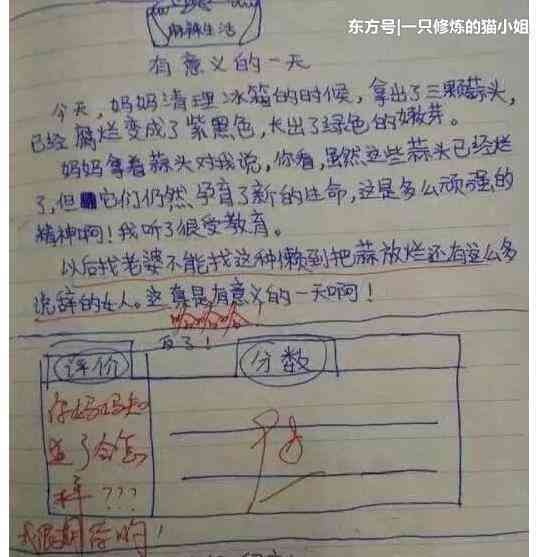 东方号|一只修炼的猫小姐
麻辣生活
有意义的一天
今天,妈妈清理冰箱的时候,拿出了三颗蒜头,
已经腐烂变成了紫黑色,长出了绿色的嫩芽。
妈妈拿着蒜头对我说,你看,虽然这些蒜头已经烂
了,但它们仍然孕育了新的生命,这是多么顽强的
精神啊!我听了很受教育。
以后找老婆不能找这种懒到把蒜放烂还有这么多
说辞的女人。这真是有意义的一天啊!
哈哈哈
评价
分数
你妈妈知
道了会怎
样???